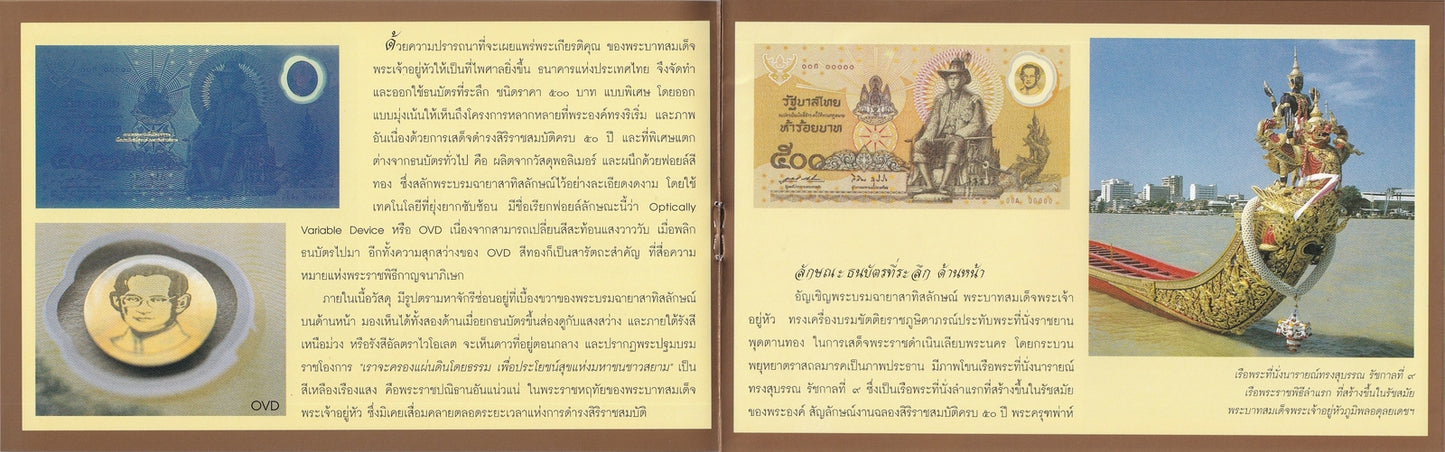 ด้วยความปรารถนาที่จะเผยแพร่พระเกียรติคุณ ของพระบาทสมเด็จ
พระเจ้าอยู่หัวให้เป็นที่ไพศาลยิ่งขึ้น ธนาคารแห่งประเทศไทย จึงจัดทำ
และออกใช้ธนบัตรที่ระลึก ชนิดราคา ๕๐๐ บาท แบบพิเศษ โดยออก
แบบมุ่งเน้นให้เห็นถึงโครงการหลากหลายที่พระองค์ทรงริเริ่ม และภาพ
อันเนื่องด้วยการเสด็จดำรงสิริราชสมบัติครบ ๕๐ ปี และที่พิเศษแตก
ต่างจากธนบัตรทั่วไป คือ ผลิตจากวัสดุพอลิเมอร์ และผนึกด้วยฟอยล์สี
ทอง ซึ่งสลักพระบรมฉายาสาทิสลักษณ์ไว้อย่างละเอียดงดงาม โดยใช้
เทคโนโลยีที่ยุ่งยากซับซ้อน มีชื่อเรียกฟอยล์ลักษณะนี้ว่า Optically
Variable Device หรือ OVD เนื่องจากสามารถเปลี่ยนสีสะท้อนแสงวาววับ เมื่อพลิก
ธนบัตรไปมา อีกทั้งความสุกสว่างของ OVD สีทองก็เป็นสารัตถะสำคัญ ที่สื่อความ
หมายแห่งพระราชพิธีกาญจนาภิเษก
ภายในเนื้อวัสดุ มีรูปตรามหาจักรีซ่อนอยู่ที่เบื้องขวาของพระบรมฉายาสาทิสลักษณ์
บนด้านหน้า มองเห็นได้ทั้งสองด้านเมื่อยกธนบัตรขึ้นส่องดูกับแสงสว่าง และภายใต้รังสี
เหนือม่วง หรือรังสีอัลตราไวโอเลต จะเห็นดาวที่อยู่ตอนกลาง และปรากฏพระปฐมบรม
ราชโองการ "เราจะครองแผ่นดินโดยธรรม เพื่อประโยชน์สุขแห่งมหาชนชาวสยาม" เป็น
สีเหลืองเรืองแสง คือพระราชปณิธานอันแน่วแน่ ในพระราชหฤทัยของพระบาทสมเด็จ
พระเจ้าอยู่หัว ซึ่งมิเคยเสื่อมคลายตลอดระยะเวลาแห่งการดำรงสิริราชสมบัติ
OVD
๐๐ก ๐๐๐๐๐
รัฐบาลไทย
ห้าร้อยบาท
๕๐๐
ลักษณะธนบัตรที่ระลึก ด้านหน้า
อัญเชิญพระบรมฉายาสาทิสลักษณ์ พระบาทสมเด็จพระเจ้า
อยู่หัว ทรงเครื่องบรมขัตติยราชภูษิตาภรณ์ประทับพระที่นั่งราชยาน
พุดตานทอง ในการเสด็จพระราชดำเนินเลียบพระนคร โดยกระบวน
พยุหยาตราสถลมารคเป็นภาพประธาน มีภาพโขนเรือพระที่นั่งนารายณ์
ทรงสุบรรณ รัชกาลที่ ๙ ซึ่งเป็นเรือพระที่นั่งลำแรกที่สร้างขึ้นในรัชสมัย
ของพระองค์ สัญลักษณ์งานฉลองสิริราชสมบัติครบ ๕๐ ปี พระครุฑพ่าห์
เรือพระที่นั่งนารายณ์ทรงสุบรรณ รัชกาลที่ ๙
เรือพระราชพิธีลำแรก ที่สร้างขึ้นในรัชสมัย
พระบาทสมเด็จพระเจ้าอยู่หัวภูมิพลอดุลยเดชฯ